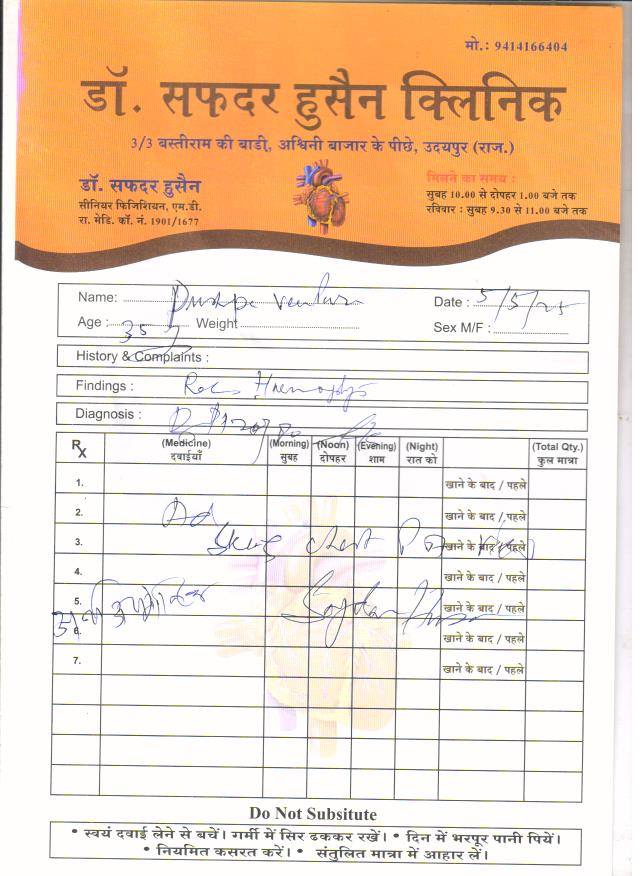 मो.: 9414166404
डॉ. सफदर हुसैन क्लिनिक
3/3 बस्तीराम की बाडी, अश्विनी बाजार के पीछे, उदयपुर (राज.)
डॉ. सफदर हुसैन
सीनियर फिजिशियन, एम.डी.
रा. मेडि. कॉ. नं. 1901/1677
मिलने का समय :
सुबह 10.00 से दोपहर 1.00 बजे तक
रविवार : सुबह 9.30 से 11.00 बजे तक
Name: Date : 5/5/25
Age : 35 Weight Sex M/F :
History & Complaints :
Findings :
Diagnosis :
Rx (Medicine) (Morning) (Noon) (Evening) (Night) (Total Qty.)
दवाईयाँ सुबह दोपहर शाम रात को कुल मात्रा
1. खाने के बाद / पहले
2. Ad खाने के बाद / पहले
3. chest खाने के बाद / पहले
4. खाने के बाद / पहले
5. खाने के बाद / पहले
6. खाने के बाद / पहले
7. खाने के बाद / पहले
Do Not Subsitute
• स्वयं दवाई लेने से बचें। गर्मी में सिर ढककर रखें। • दिन में भरपूर पानी पियें।
• नियमित कसरत करें। • संतुलित मात्रा में आहार लें।